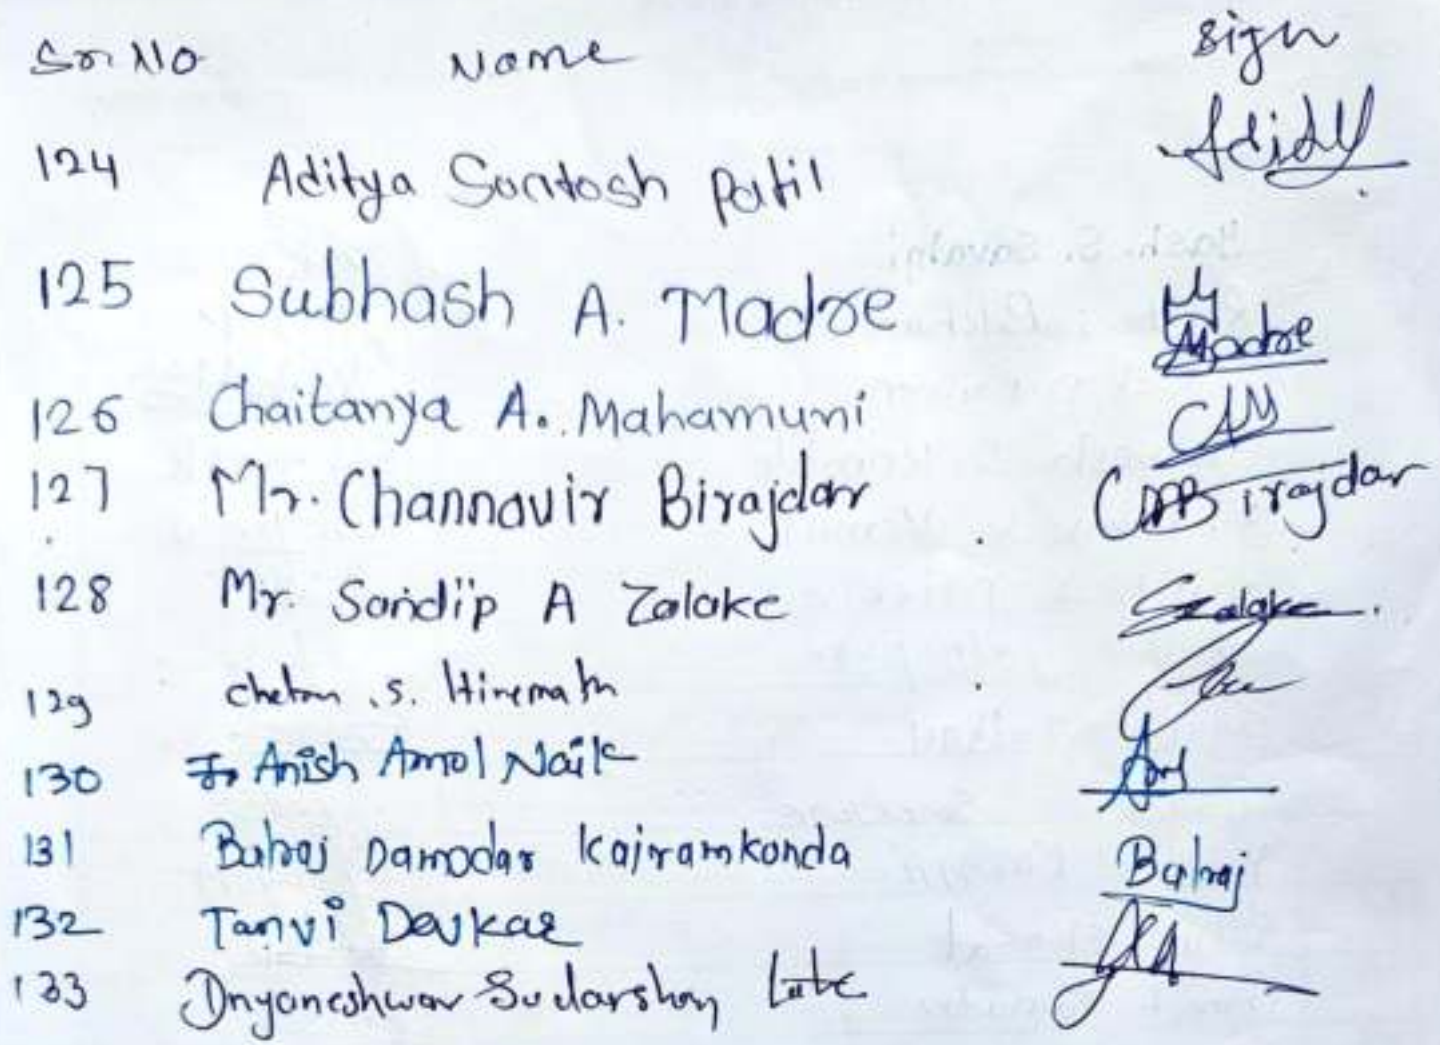 Sr. No Name Sign
124 Aditya Santosh Patil
125 Subhash A. Madre Madre
126 Chaitanya A. Mahamuni
127 Mr. Channavir Birajdar Birajdar
128 Mr. Sandip A Zalake Szalake
129 Chetan .S. Hiremath
130 Anish Amol Naik
131 Balraj Damodar Kajramkonda Balraj
132 Tanvi Devkar
133 Dnyaneshwar Sudarshan